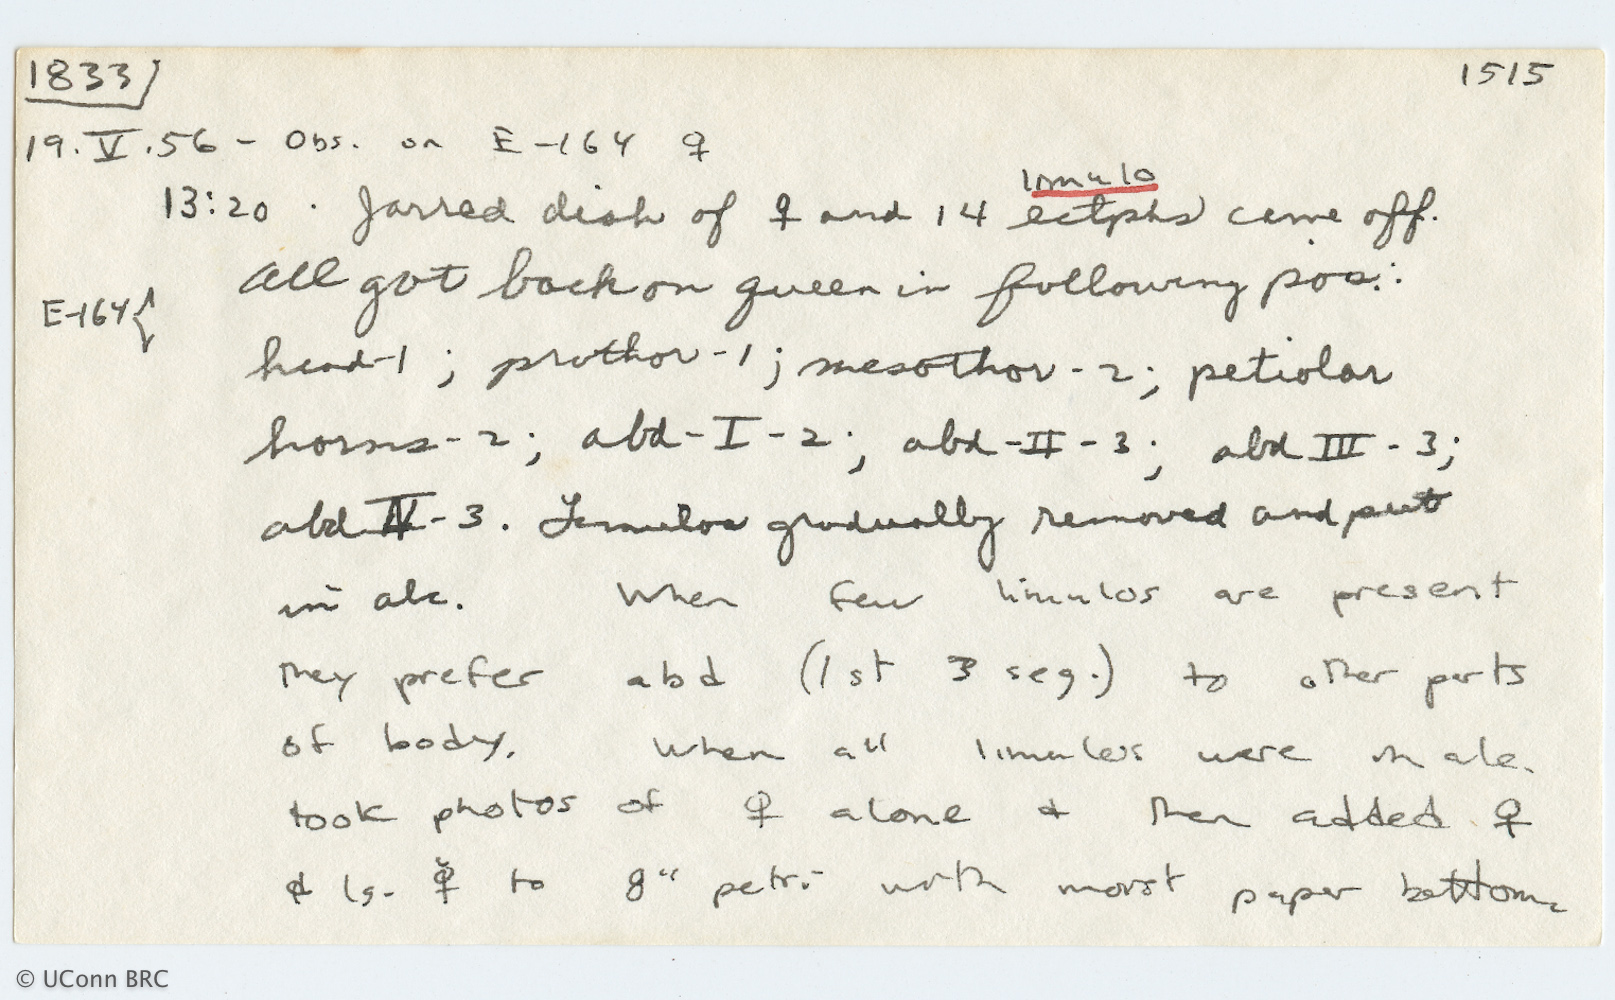 1833
1515
19.V.56 - Obs. on E-164 ♀
limulo
13:20 . Jarred dish of ♀ and 14 ectphs came off.
All got back on queen in following pos.:
E-164 {
head-1; prothor-1; mesothor-2; petiolar
horns-2; abd-I-2; abd-II-3; abd III-3;
abd IV-3. Limulos gradually removed and put
in alc. When few limulos are present
they prefer abd (1st 3 seg.) to other parts
of body. When all limulos were in alc.
took photos of ♀ alone & then added ♀
& lg. to 8" petri with moist paper bottom.
© UConn BRC